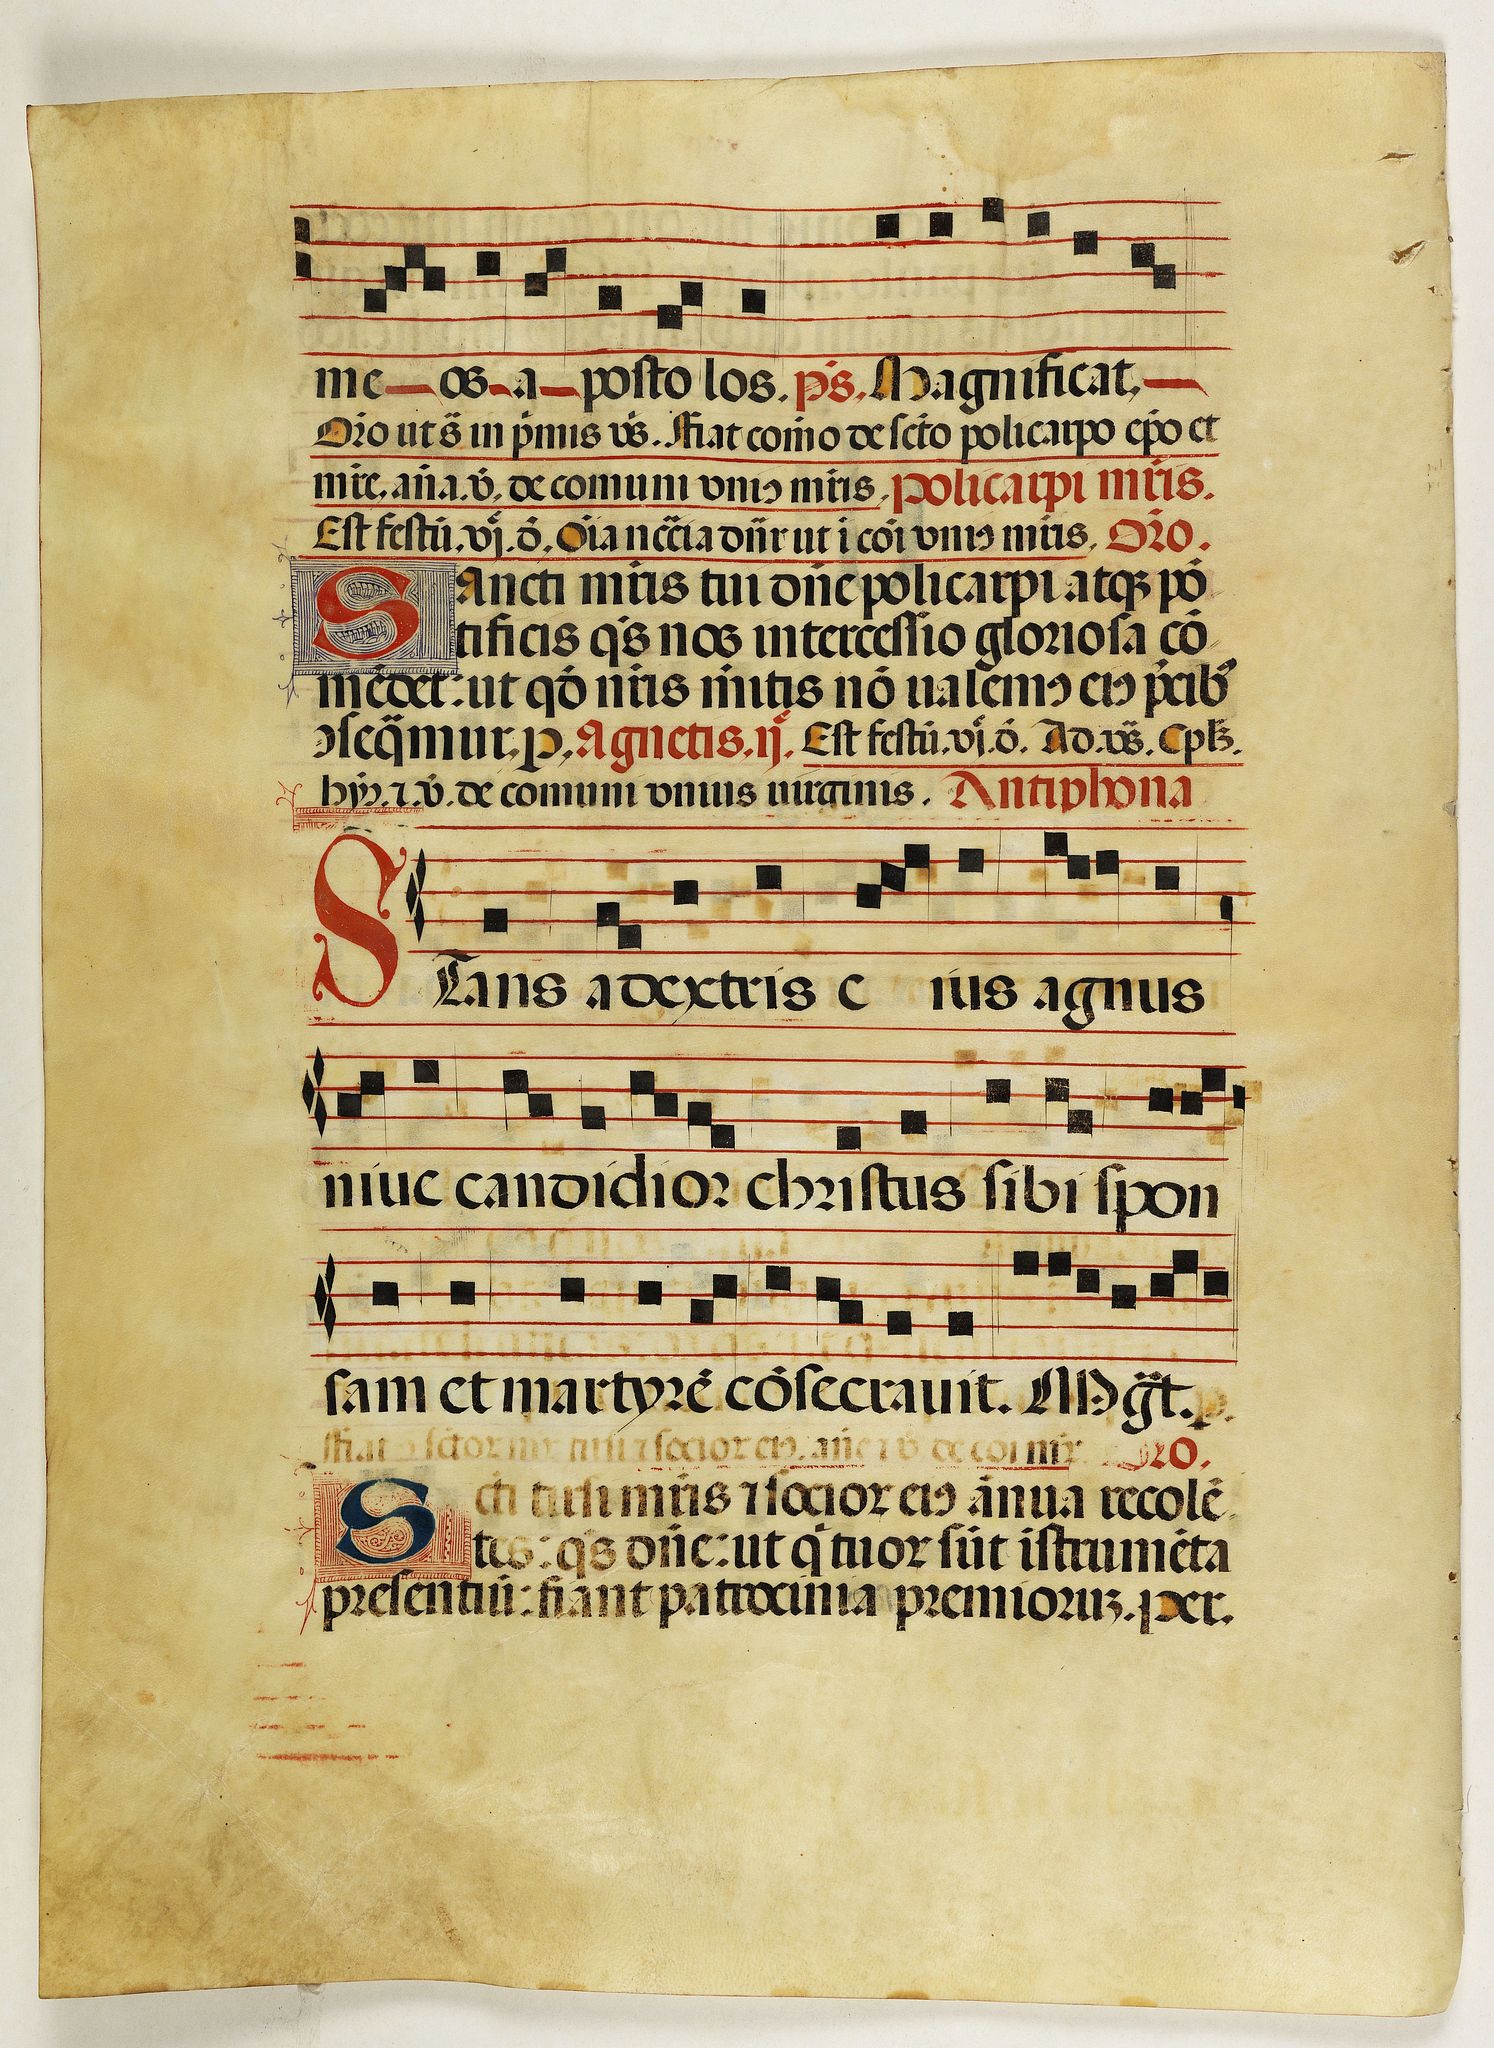 me os a posto los. ps. Magnificat,
Oro ut s̄ in p̄mis vs̄. ffiat com̄o de scto policarpo ep̄o et
mr̄e, an̄a. v̄. de comuni vniꝰ mr̄is, policarpi mr̄is.
Est festū. vj. ō. Oīa nc̄c̄ia dn̄r ut i cōi vniꝰ mr̄is, Oro.
Sancti mr̄is tui dn̄e policarpi atqꝫ pō
tificis qs̄ nos intercessio gloriosa cō
mēdet: ut qō nr̄is m̄itis nō ualemꝰ eiꝰ p̄cibꝰ
ↄseq̄mur. p. Agnetis. ij. Est festū. vj. ō. Ad. vs̄. Cpls̄.
hyꝰ. ⁊. v̄. de comuni vnius uirginis. Antiphona
STans a dextris e ius agnus
niue candidior christus sibi spon
sam et martyrē cōsecrauit. Mḡt. p.
ffiat scto⁊ mr̄ ⁊ socio⁊ eiꝰ. an̄e ⁊ v̄ de coi mr̄ Oro.
Scti tirsi mr̄is ⁊ socioꝝ eiꝰ ānua recolē
tes: qs̄ dn̄e: ut q̄ tuoꝝ sūt istrumēta
presentiū: fiant patrocinia premioruꝫ. per.